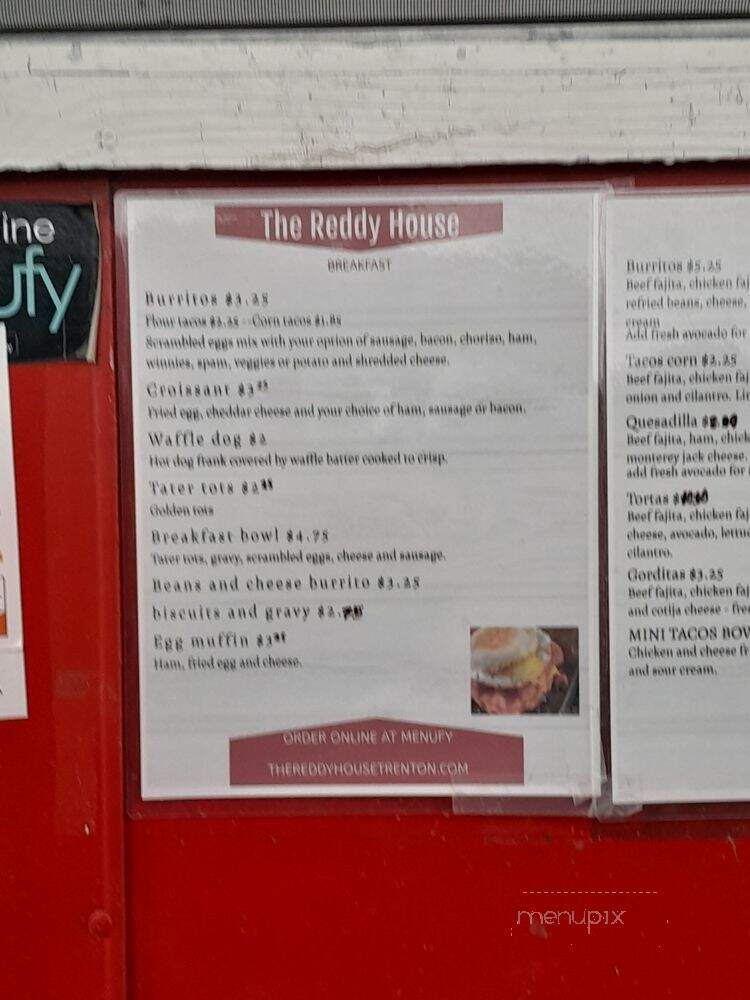 ine
ufy
The Reddy House
BREAKFAST
Burritos $3.25
Flour tacos $2.25 --Corn tacos $1.85
Scrambled eggs mix with your option of sausage, bacon, chorizo, ham,
winnies, spam, veggies or potato and shredded cheese.
Croissant $3
Fried egg, cheddar cheese and your choice of ham, sausage or bacon.
Waffle dog $2
Hot dog frank covered by waffle batter cooked to crisp.
Tater tots $2
Golden tots
Breakfast bowl $4.75
Tater tots, gravy, scrambled eggs, cheese and sausage.
Beans and cheese burrito $3.25
biscuits and gravy $2.
Egg muffin $3
Ham, fried egg and cheese.
ORDER ONLINE AT MENUFY
THEREDDYHOUSETRENTON.COM
Burritos $5.25
Beef fajita, chicken faj
refried beans, cheese,
cream
Add fresh avocado for
Tacos corn $2.25
Beef fajita, chicken faj
onion and cilantro. Li
Quesadilla
Beef fajita, ham, chick
monterey jack cheese.
add fresh avocado for
Tortas
Beef fajita, chicken faj
cheese, avocado, lettuc
cilantro.
Gorditas $3.25
Beef fajita, chicken faj
and cotija cheese - fres
MINI TACOS BOW
Chicken and cheese fr
and sour cream.
menupix